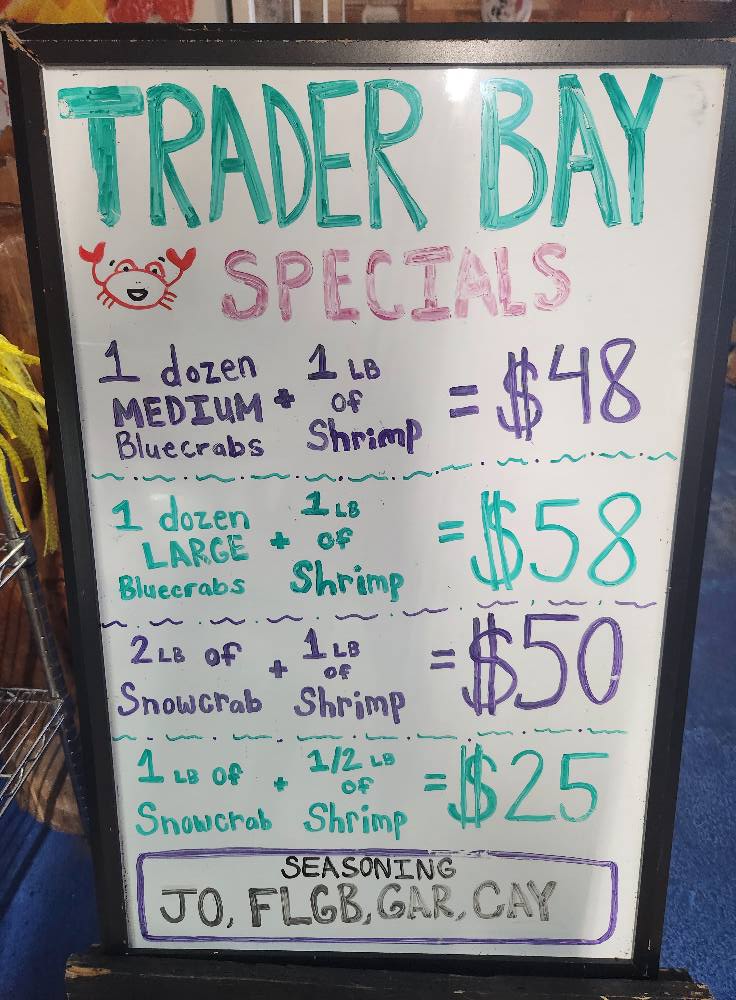 TRADER BAY
SPECIALS
1 dozen + 1 LB = $48
MEDIUM of
Bluecrabs Shrimp
1 dozen + 1 LB = $58
LARGE of
Bluecrabs Shrimp
2 LB of + 1 LB = $50
of
Snowcrab Shrimp
1 LB of + 1/2 LB = $25
of
Snowcrab Shrimp
SEASONING
JO, FLGB, GAR, CAY